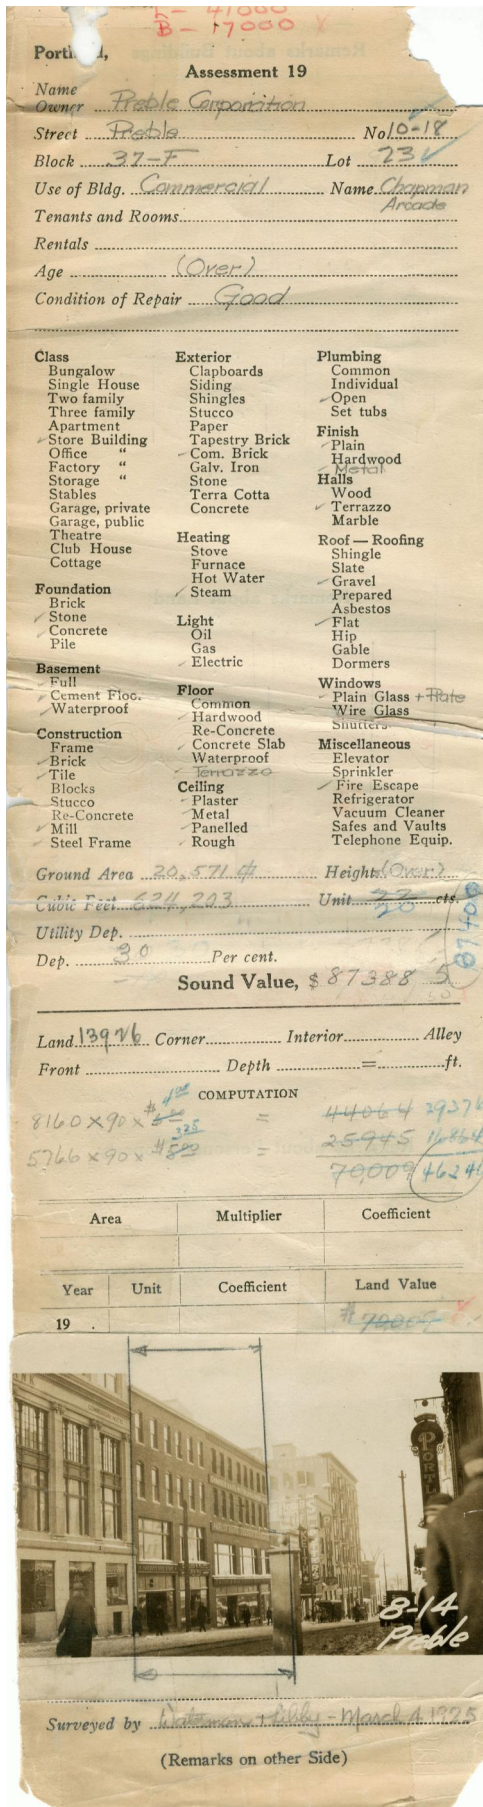 L - 41000
B - 17000
Portl d,
Assessment 19
Name
Owner Preble Corporation
Street Preble No 10-18
Block 37-F Lot 23
Use of Bldg. Commercial Name Chapman
Arcade
Tenants and Rooms
Rentals
Age (Over)
Condition of Repair Good
Class
Bungalow
Single House
Two family
Three family
Apartment
✓Store Building
Office "
Factory "
Storage "
Stables
Garage, private
Garage, public
Theatre
Club House
Cottage
Foundation
Brick
✓Stone
✓Concrete
Pile
Basement
✓Full
✓Cement Floo.
✓Waterproof
Construction
Frame
✓Brick
✓Tile
Blocks
Stucco
Re-Concrete
✓Mill
✓Steel Frame
Exterior
Clapboards
Siding
Shingles
Stucco
Paper
Tapestry Brick
✓Com. Brick
Galv. Iron
Stone
Terra Cotta
Concrete
Heating
Stove
Furnace
Hot Water
✓Steam
Light
Oil
Gas
✓Electric
Floor
Common
✓Hardwood
Re-Concrete
✓Concrete Slab
Waterproof
✓Terrazzo
Ceiling
✓Plaster
✓Metal
✓Panelled
✓Rough
Plumbing
Common
Individual
✓Open
Set tubs
Finish
✓Plain
Hardwood
✓Metal
Halls
Wood
✓Terrazzo
Marble
Roof — Roofing
Shingle
Slate
✓Gravel
Prepared
Asbestos
✓Flat
Hip
Gable
Dormers
Windows
✓Plain Glass + Plate
✓Wire Glass
Shutters
Miscellaneous
Elevator
Sprinkler
✓Fire Escape
Refrigerator
Vacuum Cleaner
Safes and Vaults
Telephone Equip.
Ground Area 20,571 Height (Over)
Cubic Feet 624,203 Unit 22 cts.
20
87400
Utility Dep.
Dep. 30 Per cent.
Sound Value, $ 87388
Land 13926 Corner Interior Alley
Front Depth = ft.
COMPUTATION
8160 x 90 x $ 4.00 = 44064 29376
5766 x 90 x $ 3.25 = 25945 16864
70,009 46241
Area Multiplier Coefficient
Year Unit Coefficient Land Value
19 . $ 70,009
PORTL
8-14
Preble
Surveyed by Waterman + Libby - March 4 1925
(Remarks on other Side)